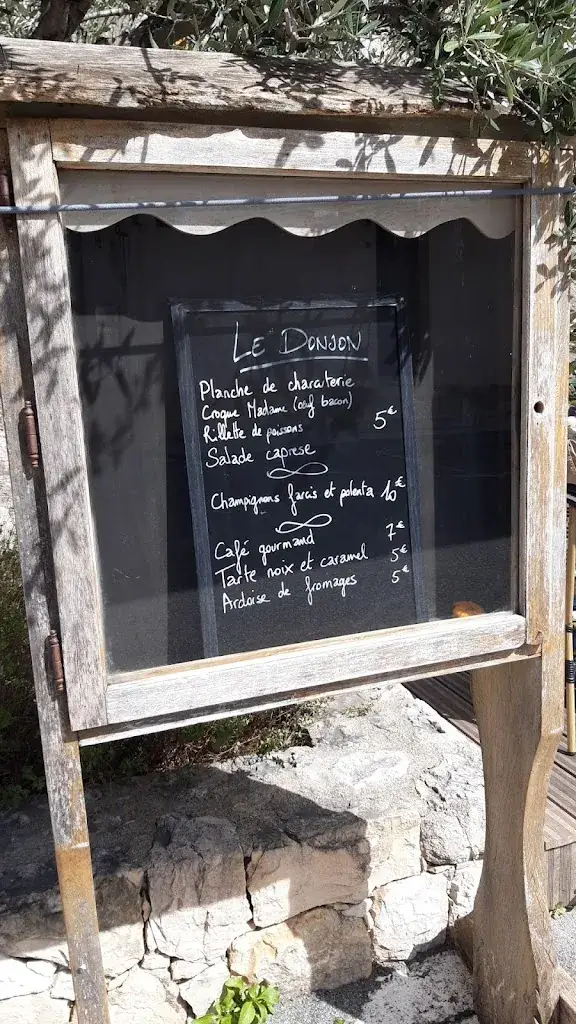 LE DONJON
Planche de charcuterie
Croque Madame (œuf bacon)
Rillette de poissons 5€
Salade caprese
Champignons farcis et polenta 10€
Café gourmand 7€
Tarte noix et caramel 5€
Ardoise de fromages 5€